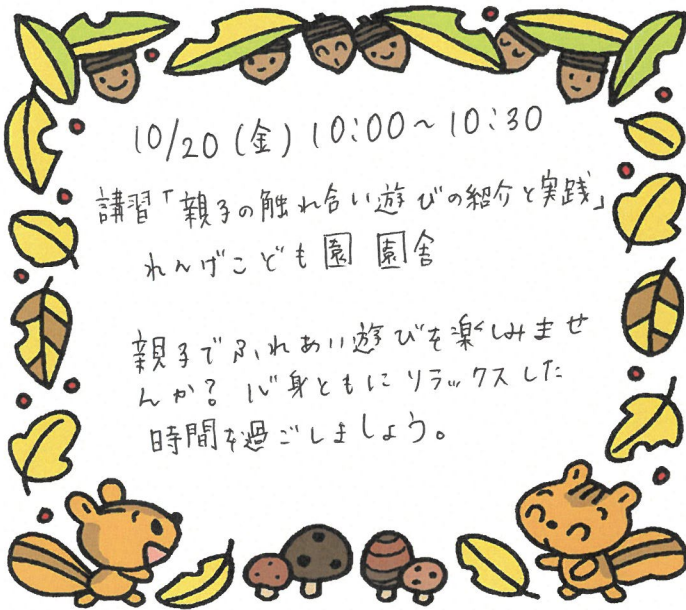 10/20(金)10:00~10:30
講習「親子の触れ合い遊びの紹介と実践」
れんげこども園 園舎
親子でふれあい遊びを楽しみませ
んか？心身ともにリラックスした
時間を過ごしましょう。